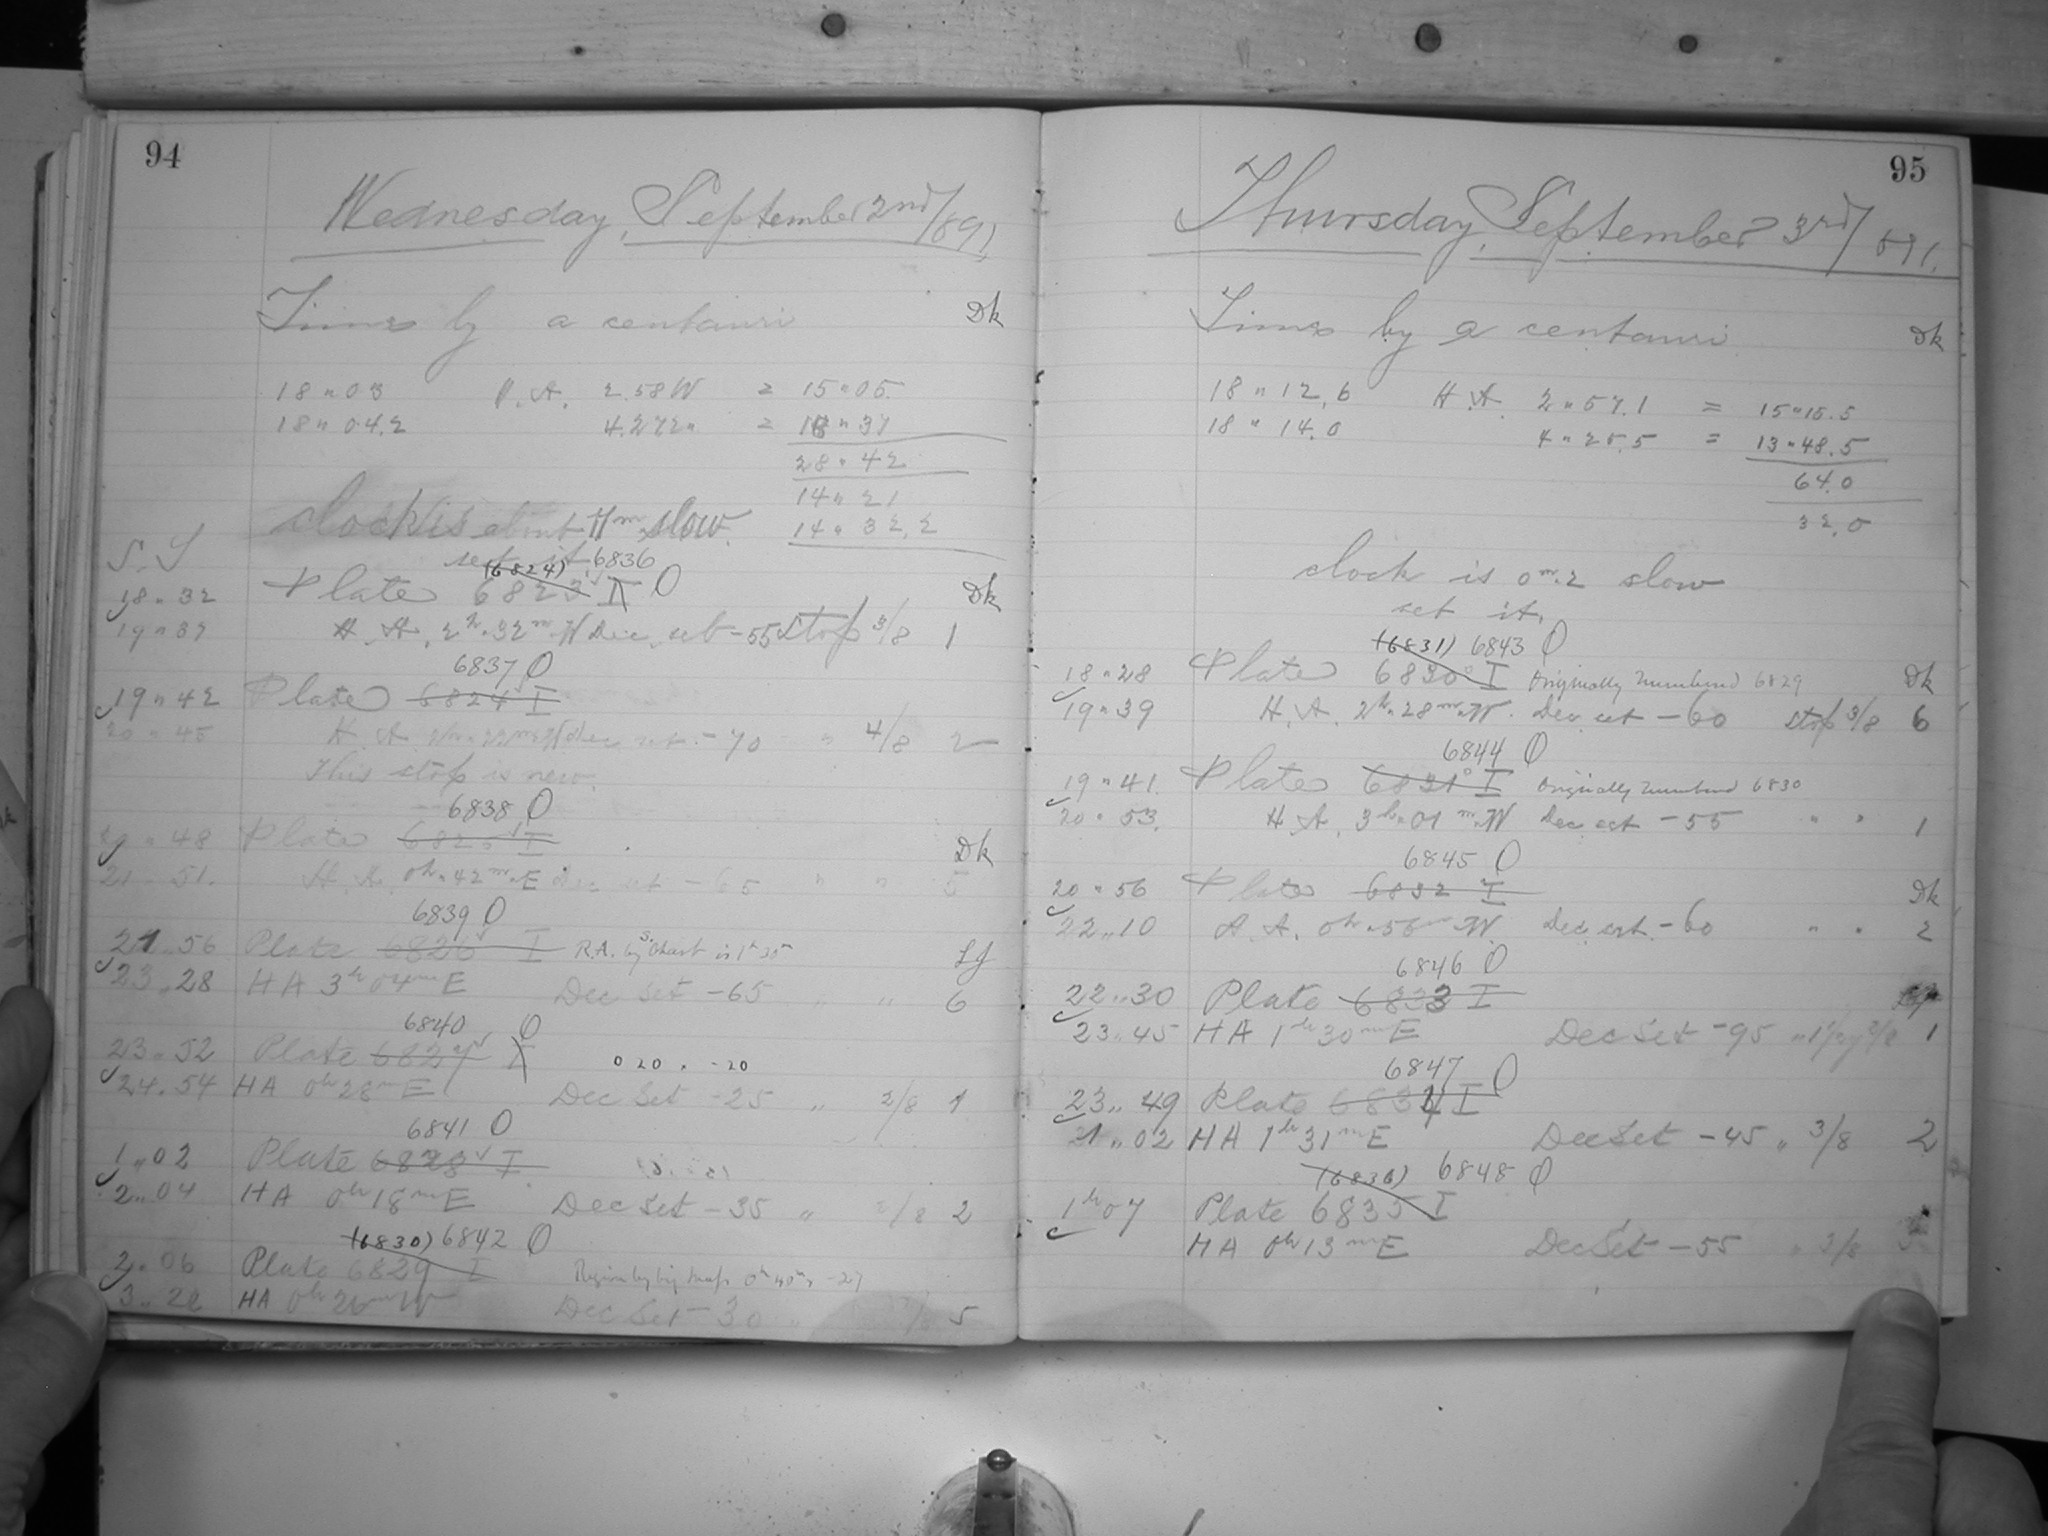 94
Wednesday, September 2nd/1891
Times by a centauri Dk
18 " 03 H.A. 2.58 W = 15 " 05.
18 " 04.2 4.27 E " = 13 " 37
28 " 42
14 " 21
14 " 32.2
clock is about 11m slow.
set it
S.T
(6824) 6836
18 " 32 Plate 6823 I O Dk
19 " 37 H.A. 2h " 32m W Dec. set -55 Stop 3/8 1
6837 O
19 " 42 Plate 6824 I
20 " 45 H.A. W Dec set -70 " 4/8 2
This stop is new.
6838 O
" 48 Plate 6825 I Dk
21 " 51. H.A. 0h " 42m E Dec set -65 " " 5
6839 O
21 " 56 Plate 6826 I R.A. by S. Chart is 1h 30m
23 " 28 HA 3h 04m E Dec Set -65 " " 6
6840 O
23 " 52 Plate 6827 I 0 20 . -20
24 " 54 HA 0h 28m E Dec Set -25 " 2/8 1
6841 O
1 " 02 Plate 6828 I
2 " 04 HA 0h 18m E Dec Set -35 " 2/8 2
(6830) 6842 O
2 " 06 Plate 6829 I Region by big map 0h 40m, -27
3 " 22 HA 0h 26m W Dec Set -30 " 5
95
Thursday, September 3rd/1891.
Times by a centauri Dk
18 " 12.6 H.A. 2 " 57.1 = 15 " 15.5
18 " 14.0 4 " 25.5 = 13 " 48.5
64.0
32.0
clock is 0m.2 slow
set it.
(6831) 6843 O
18 " 28 Plate 6830 I Originally numbered 6829 Dk
19 " 39 H.A. 2h " 28m W. Dec set -60 Stop 3/8 6
6844 O
19 " 41. Plate 6831 I Originally numbered 6830
20 " 53. H.A. 3h " 01m W Dec set -55 " " 1
6845 O
20 " 56 Plate 6832 I Dk
22 " 10 H.A. 0h " 56m W. Dec set -60 " " 2
6846 O
22 " 30 Plate 6833 I
23 " 45 HA 1h 30m E Dec Set -95 " 1
6847 O
23 " 49 Plate 6834 I
21 " 02 HA 1h 31m E Dec Set -45 " 3/8 2
(6836) 6848 O
1h 07 Plate 6835 I
HA 0h 13m E Dec Set -55 " 3/8